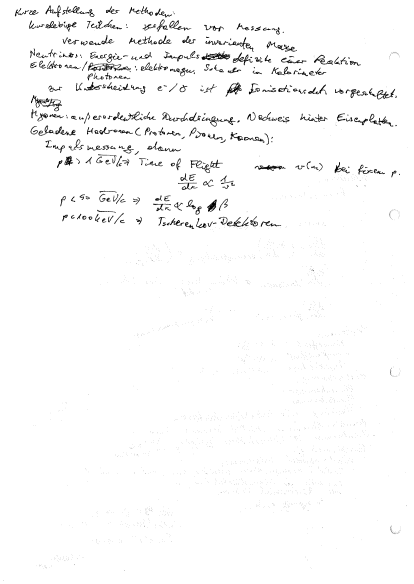 Kurze Aufstellung der Methoden:
kurzlebige Teilchen: zerfallen vor Messung.
verwende Methode der invarianten Masse
Neutrinos: Energie- und Impuls definite einer Reaktion
Elektronen/ : elektromagn. Schauer im Kalorimeter
Photonen
zur Unterscheidung e⁻/γ ist Ionisationsdet. vorgeschaltet.
Myonen: außerordentliche Durchdringung, Nachweis hinter Eisenplatten.
Geladene Hadronen (Protonen, Pionen, Kaonen):
Impulsmessung, dann
p > 1 GeV/c ⇒ Time of Flight v(m) bei fixem p.
dE/dx ∝ 1/v²
p < 50 GeV/c ⇒ dE/dx ∝ log β
p < 100 GeV/c ⇒ Tscherenkov-Detektoren